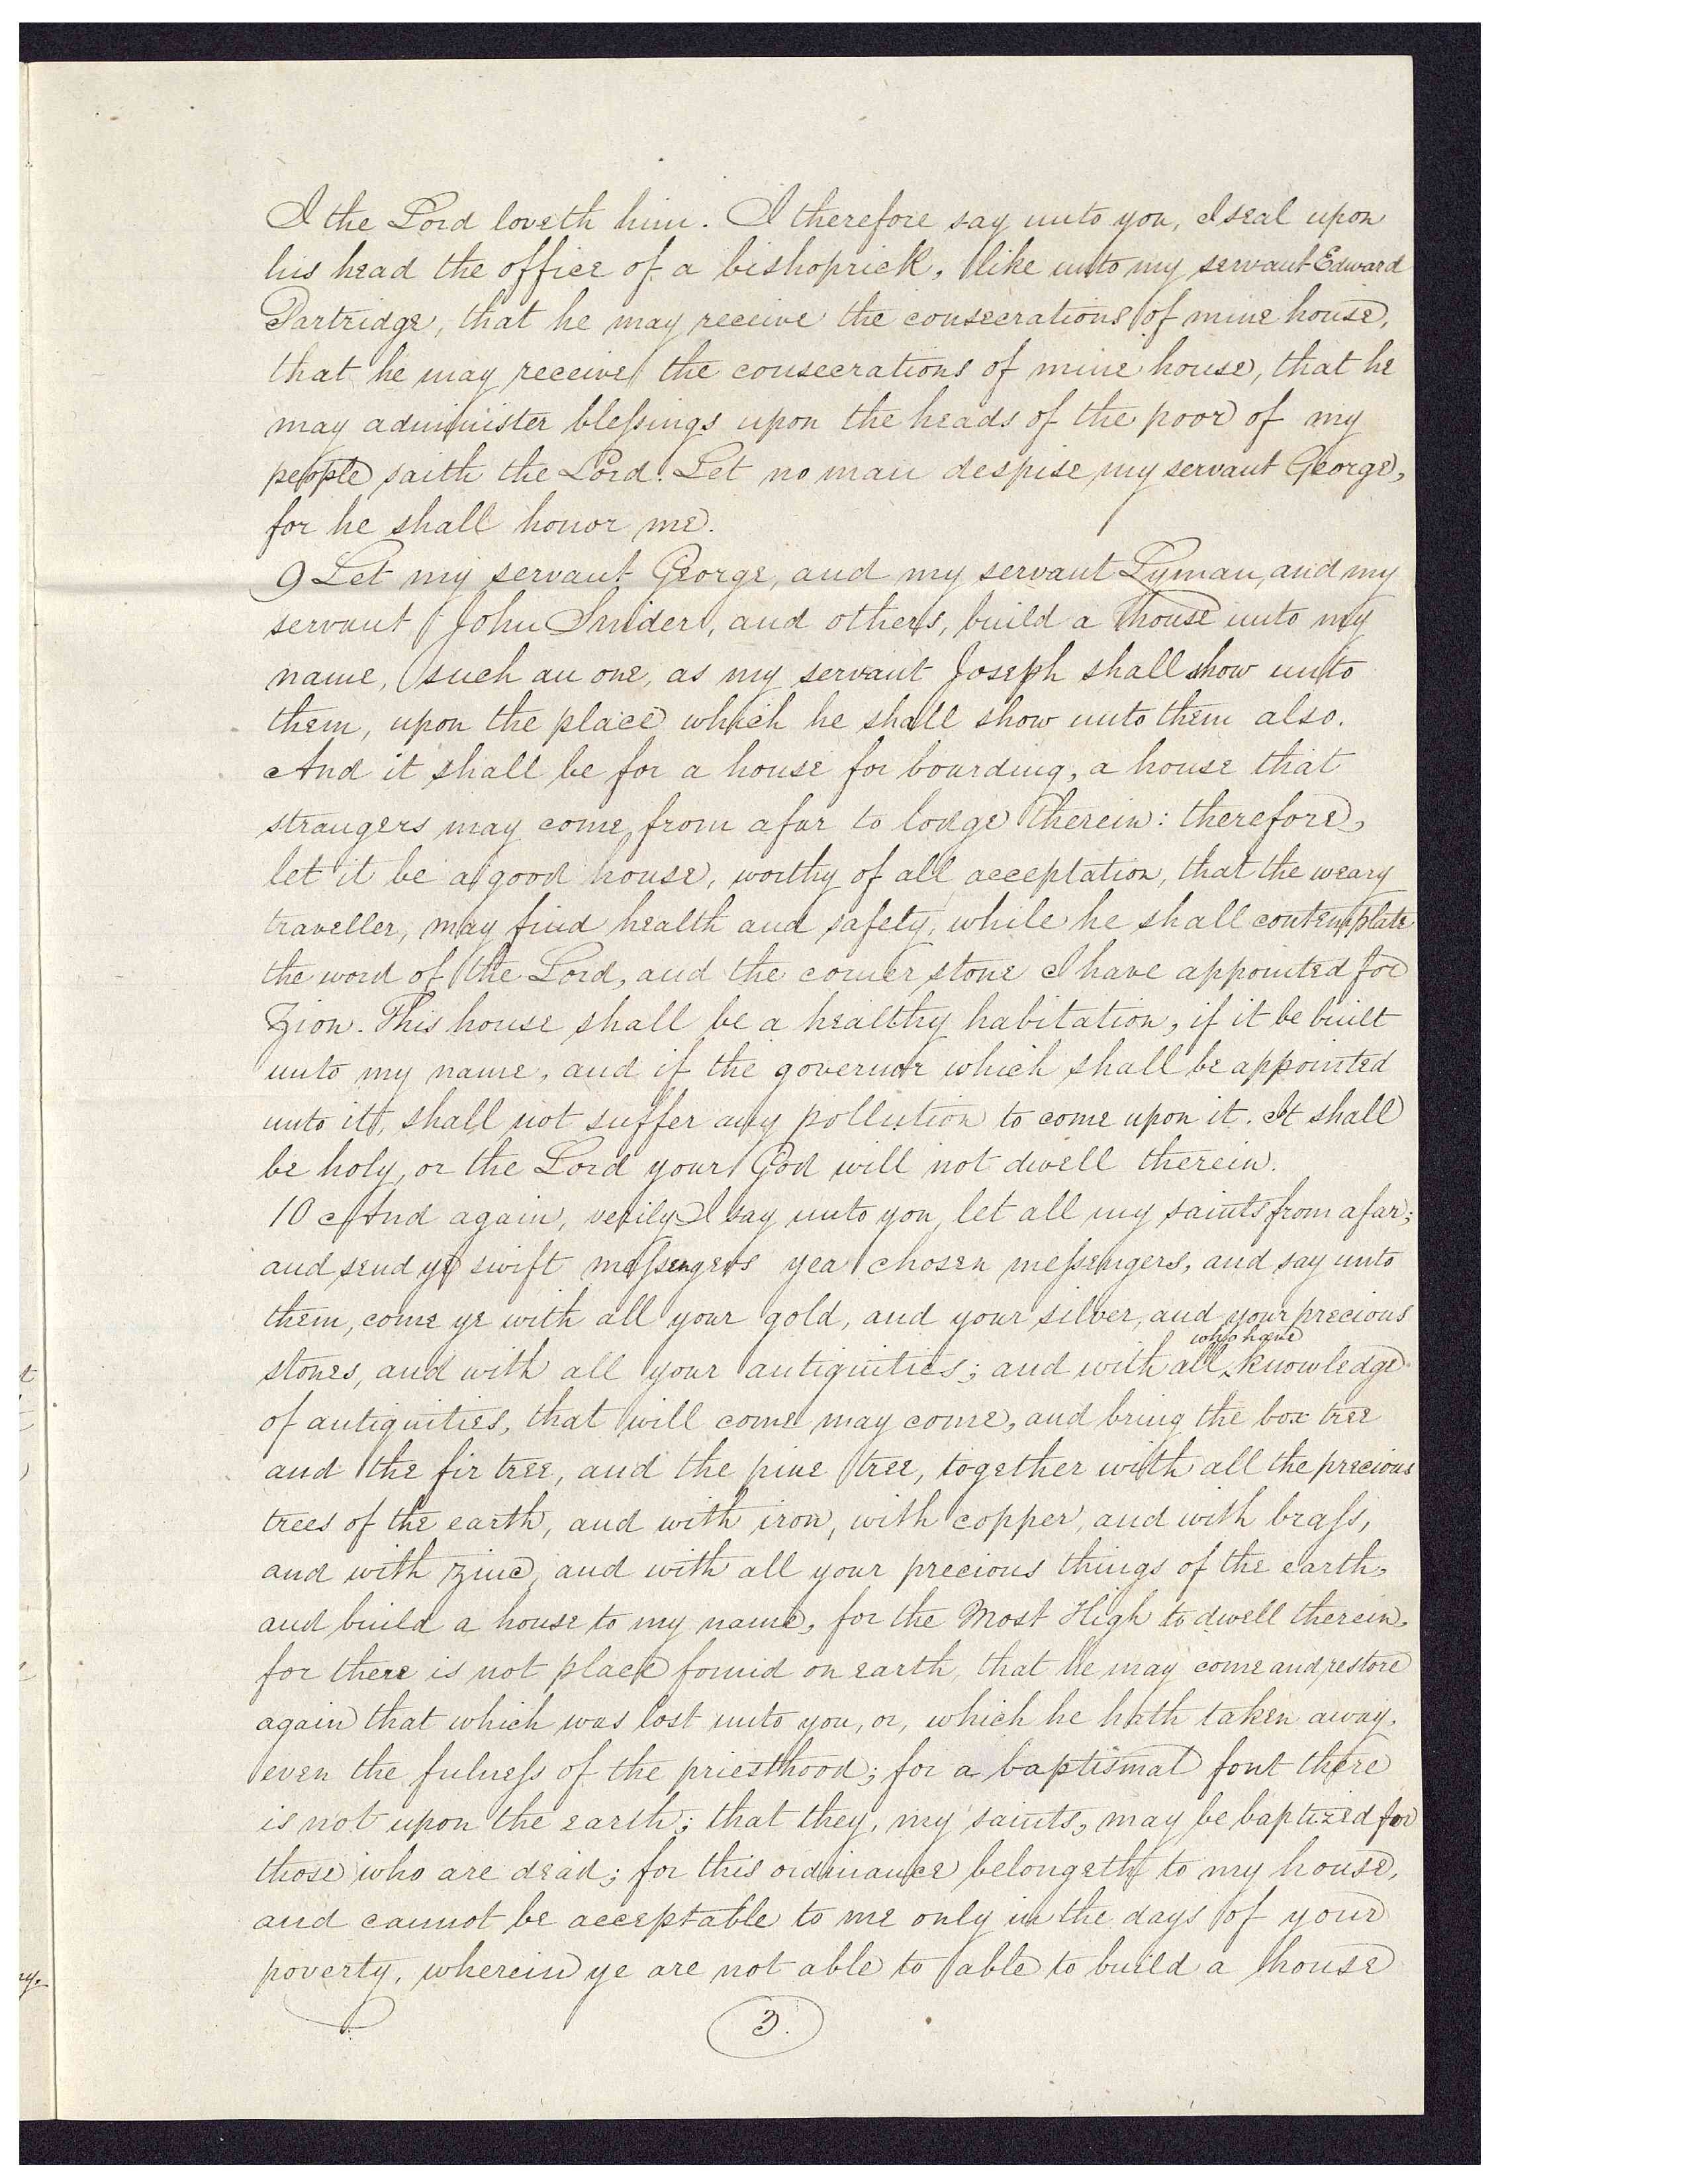 I the Lord loveth him. I therefore say unto you, I seal upon
his head the office of a bishoprick, like unto my servant Edward
Partridge, that he may receive the consecrations of mine house,
that he may receive the consecrations of mine house, that he
may administer blessings upon the heads of the poor of my
people saith the Lord. Let no man despise my servant George,
for he shall honor me.
9 Let my servant George, and my servant Lyman, and my
servant John Snider, and others, build a house unto my
name, such an one, as my servant Joseph shall show unto
them, upon the place which he shall show unto them also.
And it shall be for a house for boarding, a house that
strangers may come from afar to lodge therein: therefore,
let it be a good house, worthy of all acceptation, that the weary
traveller, may find health and safety, while he shall contemplate
the word of the Lord, and the corner stone I have appointed for
Zion. This house shall be a healthy habitation, if it be built
unto my name, and if the governor which shall be appointed
unto it, shall not suffer any pollution to come upon it. It shall
be holy, or the Lord your God will not dwell therein.
10 And again, verily I say unto you, let all my saints from afar;
and send ye swift messengers yea chosen messengers, and say unto
them, come ye with all your gold, and your silver, and your precious
who have
stones, and with all your antiquities; and with all knowledge
of antiquities, that will come may come, and bring the box tree
and the fir tree, and the pine tree, together with all the precious
trees of the earth, and with iron, with copper, and with brass,
and with zinc, and with all your precious things of the earth,
and build a house to my name, for the Most High to dwell therein,
for there is not place found on earth, that he may come and restore
again that which was lost unto you, or, which he hath taken away,
even the fulness of the priesthood; for a baptismal font there
is not upon the earth; that they, my saints, may be baptized for
those who are dead; for this ordinance belongeth to my house,
and cannot be acceptable to me only in the days of your
poverty, wherein ye are not able to able to build a house
3.